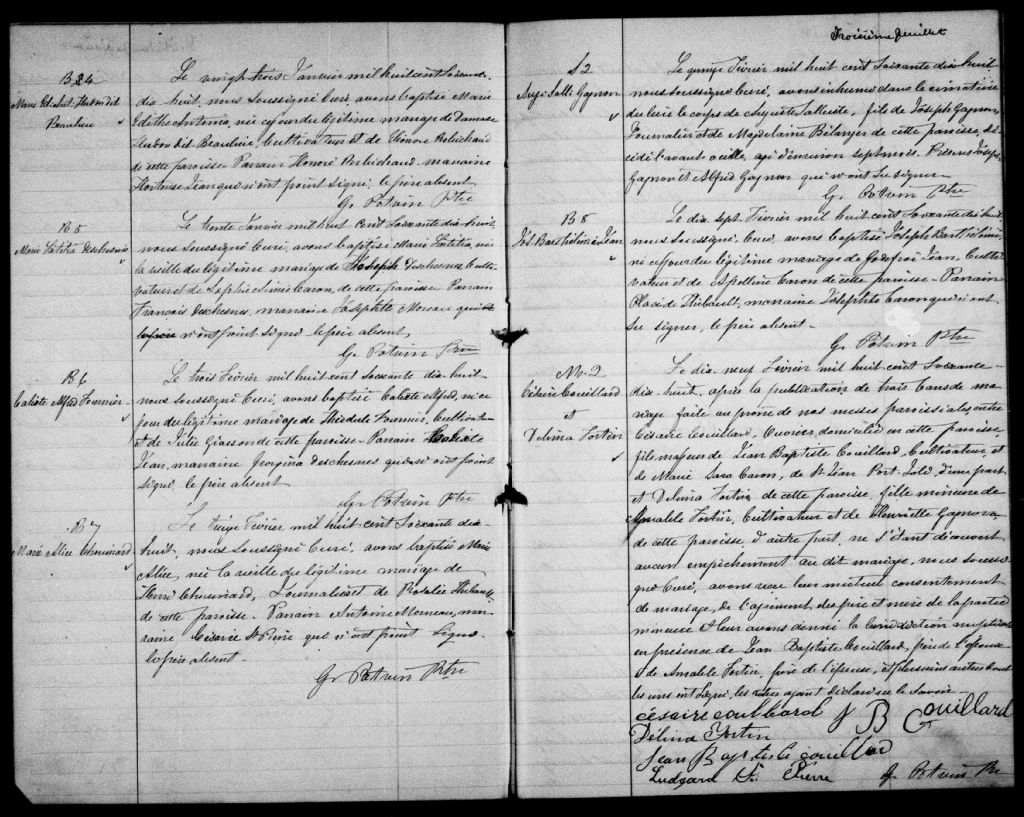 B 4
Marie Edi. Ant. Hudon dit
Beaulieu
Le vingt trois Janvier mil huit cent Soixante
dix huit, nous Soussigné Curé, avons baptisé Marie
Edithe Antonia, née ce jour du légitime mariage de Damase
Hudon dit Beaulieu, Cultivateur et de Honore Robichaud
de cette paroisse Parrain Honoré Robichaud marraine
Hortense Jean qui n'ont point signé, le père absent
G. Potvin Ptre
B 5
Marie
Le trente Janvier mil huit cent Soixante dix huit,
nous Soussigné Curé, avons baptisé Marie née
la veille du légitime mariage de Joseph Deschesnes Culti-
vateur et de Sophie Aimée Caron, de cette paroisse Parrain
François Deschesnes, marraine Josephte Moreau qui
n'ont point Signé le père absent
G. Potvin Ptre
B 6
Calixte Alfred Fournier
Le trois Février mil huit cent Soixante dix huit
nous Soussigné Curé, avons baptisé Calixte Alfred, né ce
jour du légitime mariage de Théodule Fournier, Cultivateur
et de Julie Giasson de cette paroisse - Parrain Calixte
Jean, marraine Georgina Deschesnes qui n'ont point
Signé, le père absent
G. Potvin Ptre
B 7
Marie Alice Chouinard
Le treize Février mil huit cent Soixante dix-
huit, nous Soussigné Curé, avons baptisé Marie
Alice, née la veille du légitime mariage de
Henri Chouinard, Journalier et de Rosalie Thibault
de cette paroisse - Parrain Antoine Morneau, mar-
raine Césarie St Pierre qui n'ont point Signé
le père absent -
G. Potvin Ptre
Troisième feuillet
S 2
Gagnon
Le quinze Février mil huit cent Soixante dix huit
nous Soussigné Curé, avons inhumé dans le cimetière
du lieu le corps de Auguste fils de Joseph Gagnon
Journalier et de Magdelaine Bélanger de cette paroisse, dé-
cédé l'avant veille, agé d'environ sept mois. Présens Joseph
Gagnon et Alfred Gagnon qui n'ont Su signer
G. Potvin Ptre
B 8
Jos. Barthélimi Jean
Le dix sept Février mil huit cent Soixante dix huit
nous Soussigné Curé, avons baptisé Joseph Barthélimi,
né ce jour du légitime mariage de Godefroi Jean, Culti-
vateur et de Apolline Caron de cette paroisse - Parrain
Placide Thibault, marraine Josephte Caron qui n'ont
Su signer, le père absent -
G. Potvin Ptre
M. 2
Césaire Couillard
et
Delima Fortin
Le dix neuf Février mil huit cent Soixante-
dix huit, après la publication de trois bans de ma-
riage faite au prône de nos messes paroissiales entre
Césaire Couillard, Ouvrier, domicilié en cette paroisse,
fils majeur de Jean Baptiste Couillard, Cultivateur, et
de Marie Sara Caron, de St Jean Port-Joli, d'une part
et Delima Fortin de cette paroisse, fille mineure de
Amable Fortin, Cultivateur et de Henriette Gagnon
de cette paroisse d'autre part, ne S'étant découvert
aucun empêchement au dit mariage, nous Soussi-
gné Curé, avons reçu leur mutuel consentement
de mariage, de l'agrément des père et mère de la partie
mineure et leur avons donné la bénédiction nuptiale
en présence de Jean Baptiste Couillard, père de l'époux
et de Amable Fortin, père de l'épouse, et plusieurs autres dont
les uns ont Signé, les autres ayant déclaré ne le Savoir -
césaire couillard J B Couillard
Délima Fortin
Jean Baptiste couillard
Ludgard St. Pierre G. Potvin Ptre